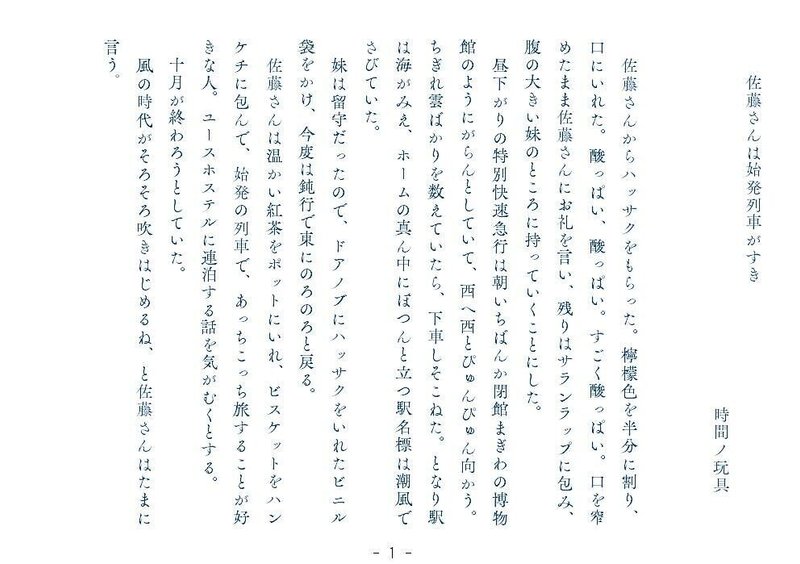 佐藤さんは始発列車がすき
時間ノ玩具
佐藤さんからハッサクをもらった。檸檬色を半分に割り、
口にいれた。酸っぱい、酸っぱい。すごく酸っぱい。口を窄
めたまま佐藤さんにお礼を言い、残りはサランラップに包み、
腹の大きい妹のところに持っていくことにした。
昼下がりの特別快速急行は朝いちばんか閉館まぎわの博物
館のようにがらんとしていて、西へ西とぴゅんぴゅん向かう。
ちぎれ雲ばかりを数えていたら、下車しそこねた。となり駅
は海がみえ、ホームの真ん中にぽつんと立つ駅名標は潮風で
さびていた。
妹は留守だったので、ドアノブにハッサクをいれたビニル
袋をかけ、今度は鈍行で東にのろのろと戻る。
佐藤さんは温かい紅茶をポットにいれ、ビスケットをハン
ケチに包んで、始発の列車で、あっちこっち旅することが好
きな人。ユースホステルに連泊する話を気がむくとする。
十月が終わろうとしていた。
風の時代がそろそろ吹きはじめるね、と佐藤さんはたまに
言う。
- 1 -